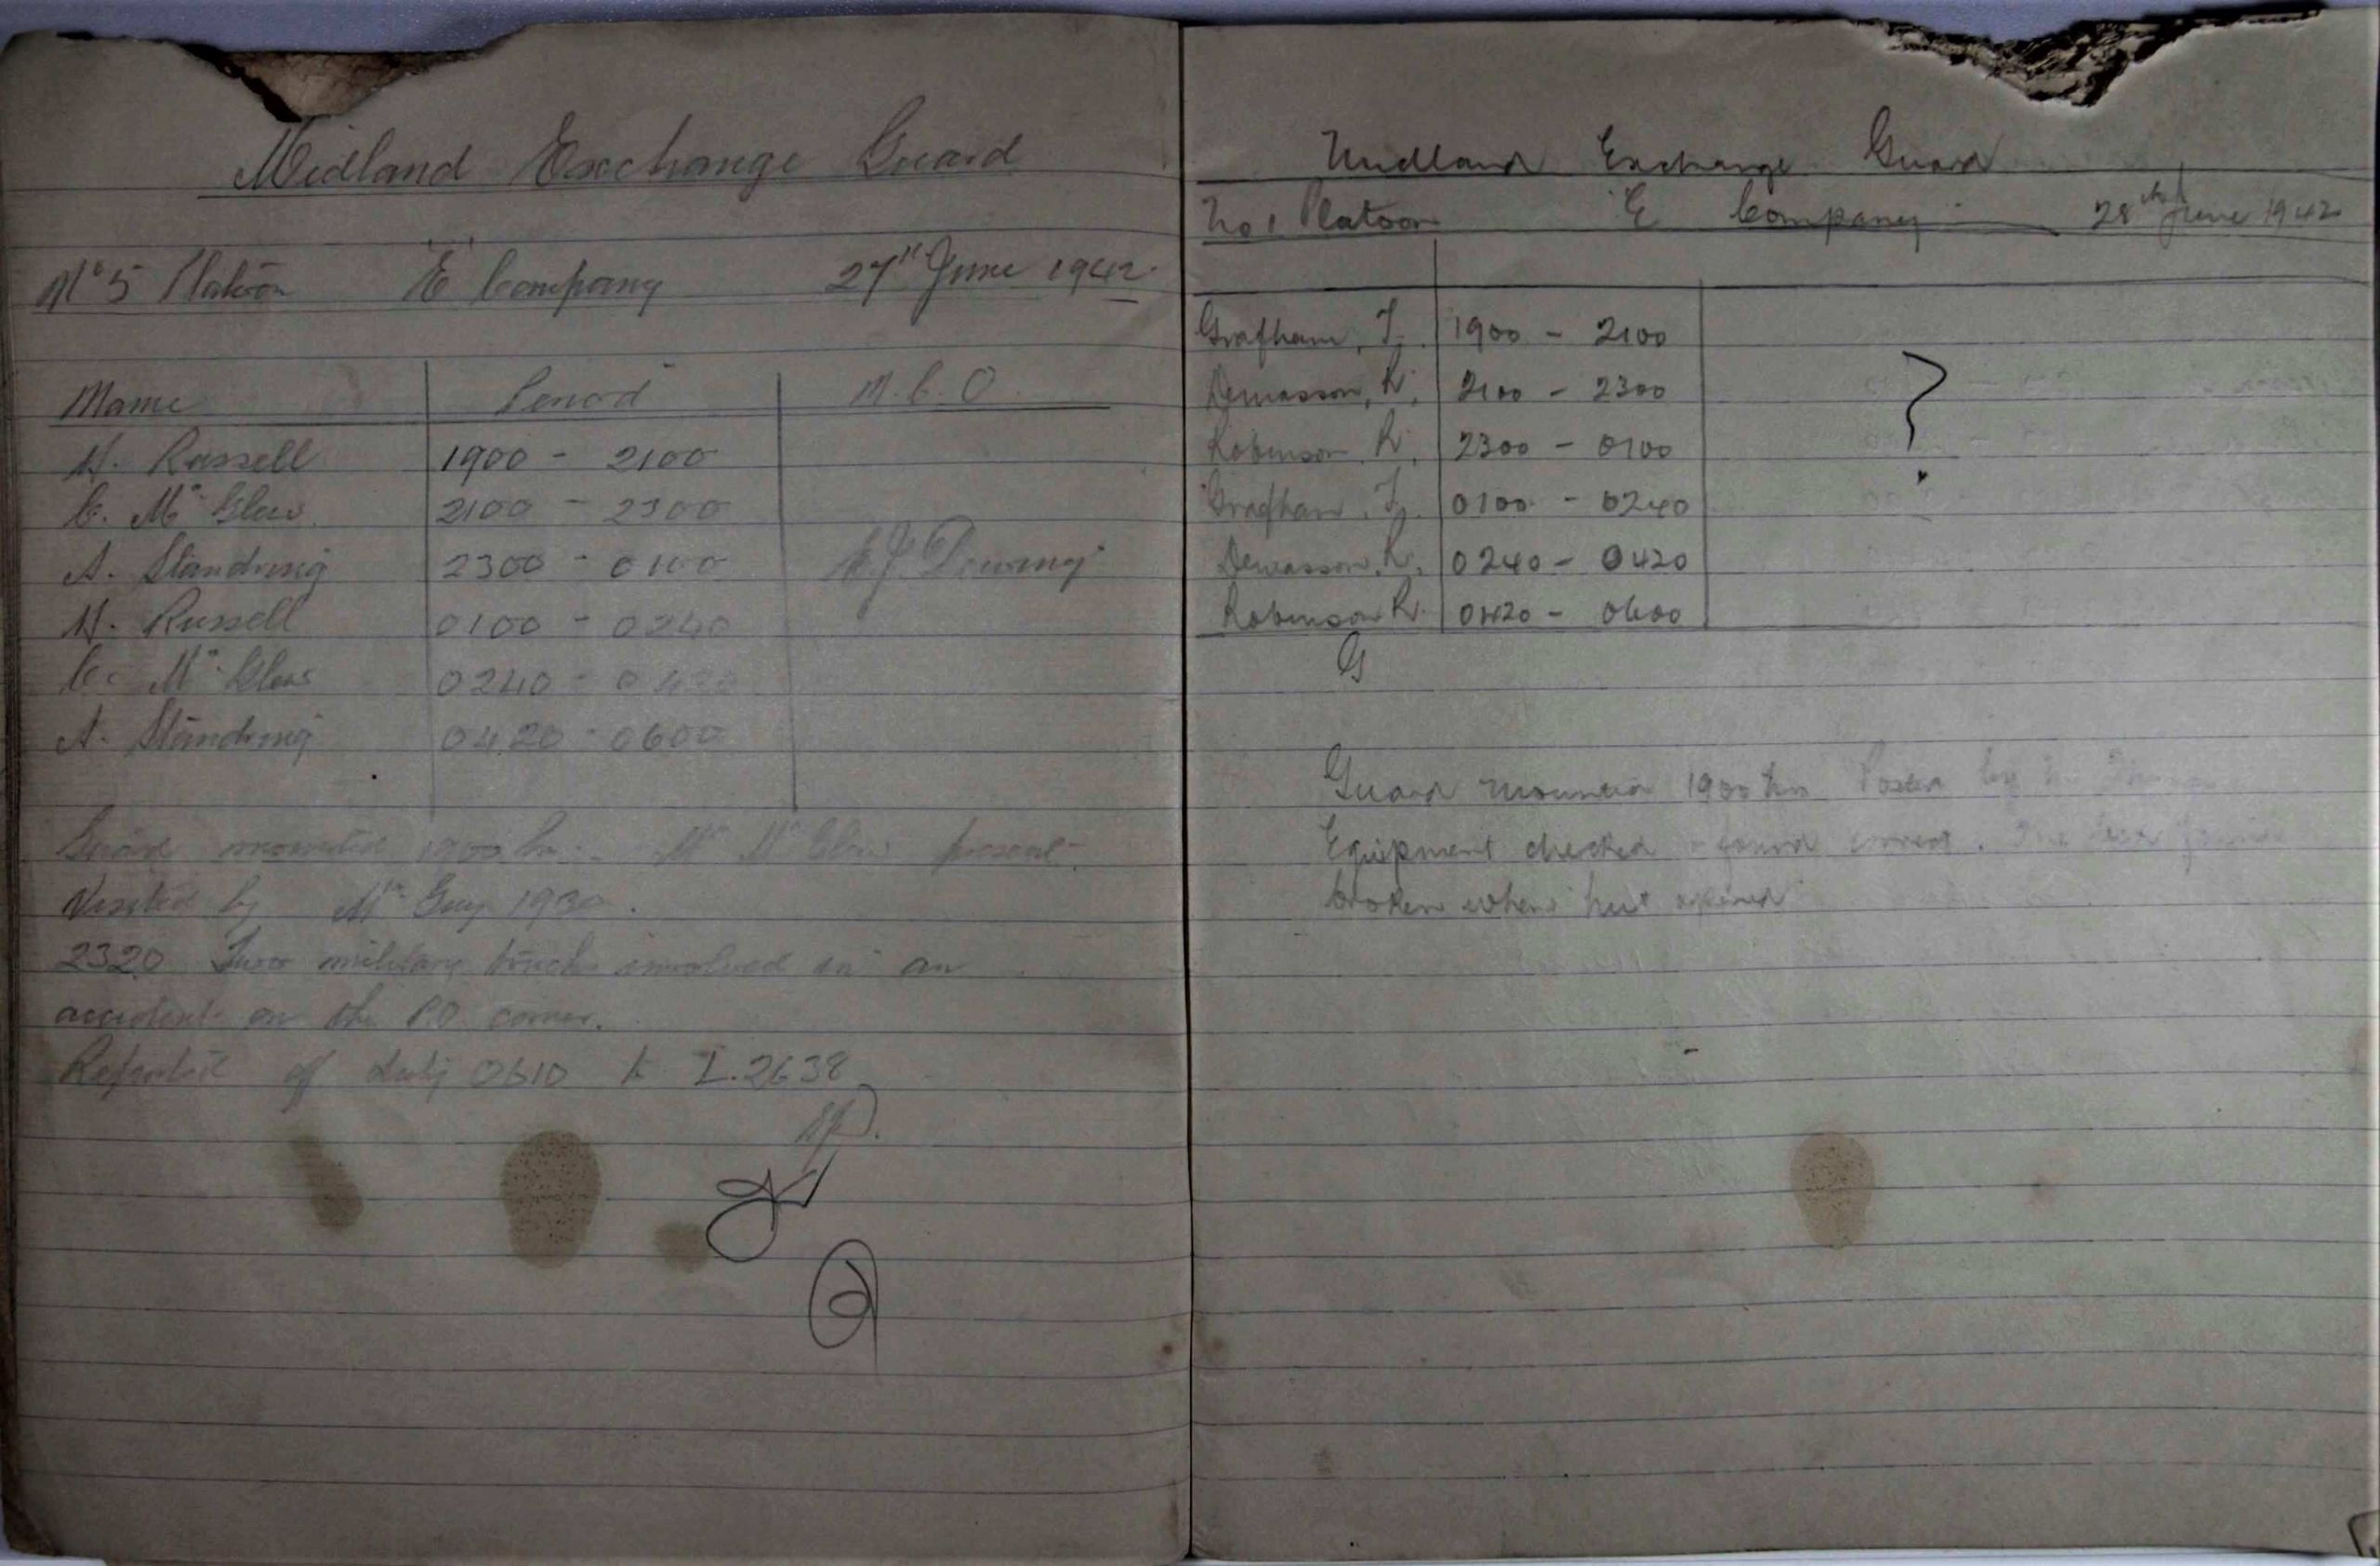 Midland Exchange Guard
No 5 Platoon 'E' Company 27th June 1942
Name Period N.C.O.
H. Russell 1900 - 2100
C. Mc Glew 2100 - 2300
A. Standring 2300 - 0100
H. Russell 0100 - 0240
C. Mc Glew 0240 - 0420
A. Standring 0420 - 0600
Guard mounted 1900 hrs. Mr Mc Glew present.
Visited by Mr Guy 1930.
2320 Two military trucks involved in an
accident on the P.O. corner.
Reported of duty 0610 to L.2638
Midland Exchange Guard
No 1 Platoon 'E' Company 28th June 1942
Grafham, F. 1900 - 2100
R. 2100 - 2300 ?
Robinson R. 2300 - 0100
Grafham, F. 0100 - 0240
R. 0240 - 0420
Robinson R. 0420 - 0600
G
Guard mounted 1900 hrs Posted by
Equipment checked & found correct. One
broken when hut opened